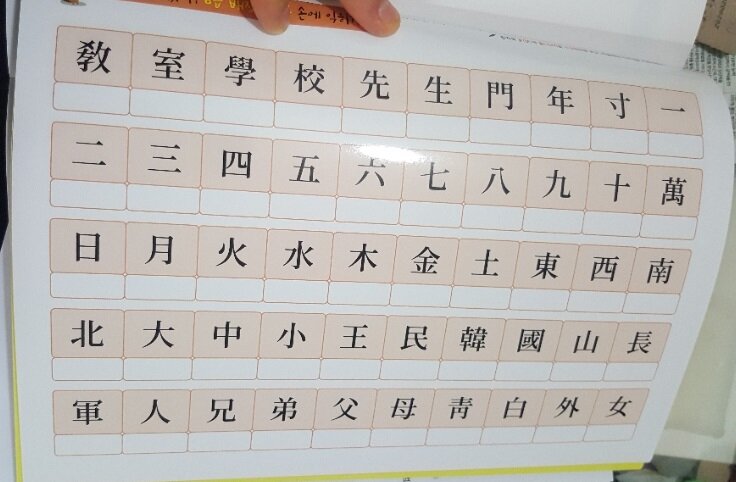 손에 익히
敎 室 學 校 先 生 門 年 寸 一
二 三 四 五 六 七 八 九 十 萬
日 月 火 水 木 金 土 東 西 南
北 大 中 小 王 民 韓 國 山 長
軍 人 兄 弟 父 母 靑 白 外 女